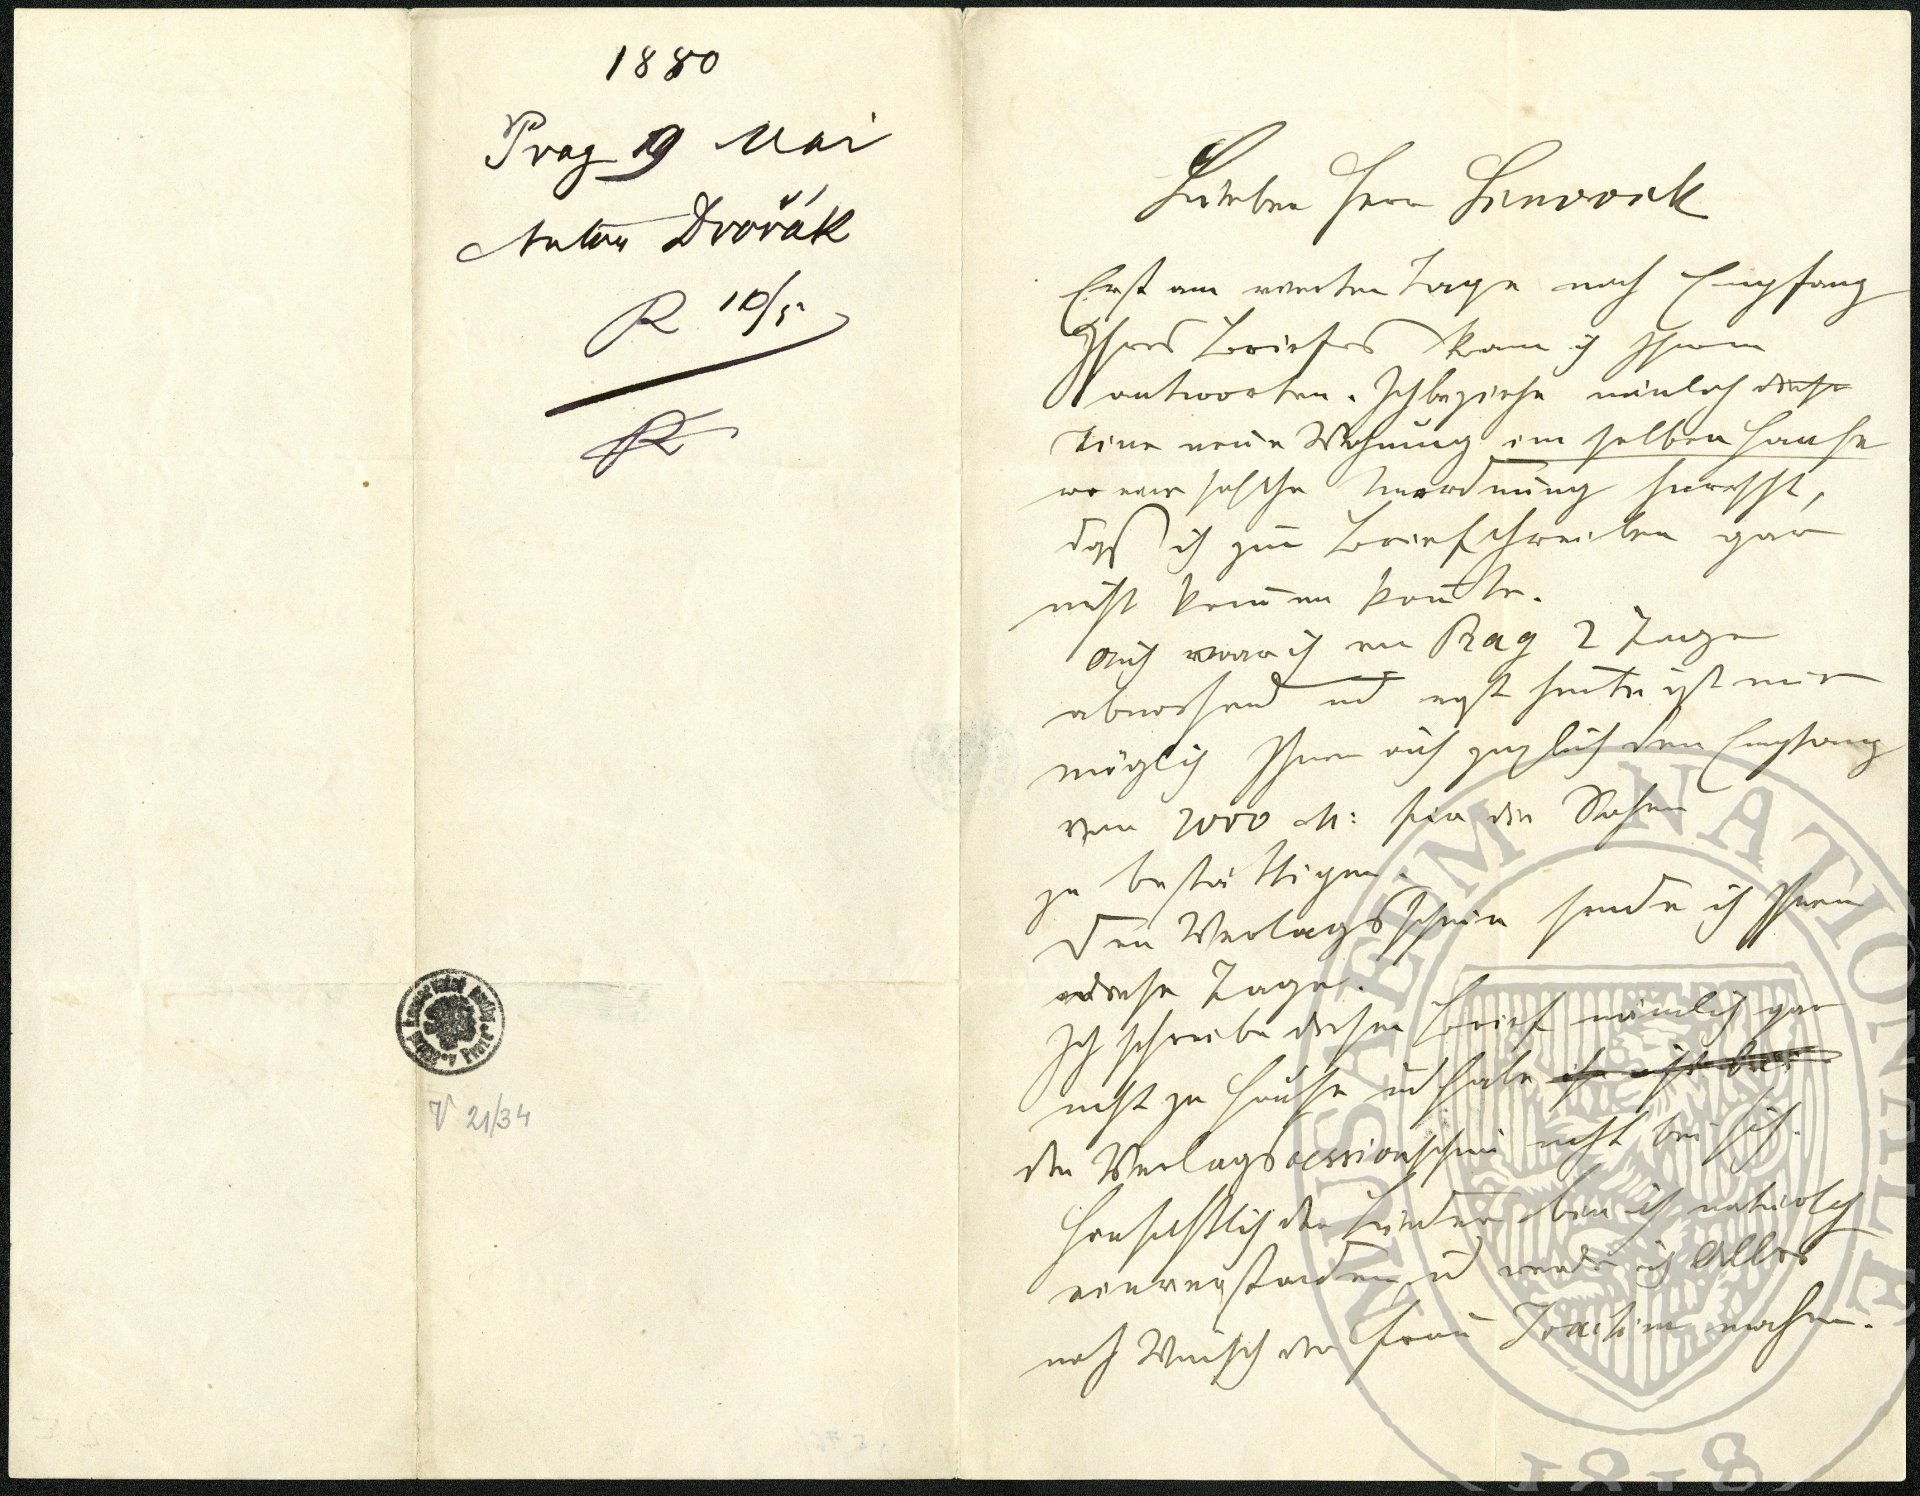 1880
Prag 9 Mai
Anton Dvořák
R 10/5
Konservatoř hudby v Praze
V 21/34
Lieber Herr Simrock
Erst am vierten Tage nach Empfang
Ihres Briefes kann ich Ihnen
antworten. Ich beziehe nämlich diese
eine neue Wohnung im selben Hause
wo eine solche Unordnung herrscht,
daß ich zum Briefschreiben gar
nicht kommen konnte.
Auch war ich von Prag 2 Tage
abwesend und erst heute ist mir
möglich Ihnen auch zugleich den Empfang
von 2000 M: für die Sachen
zu bestättigen.
Den Verlagsschein sende ich Ihnen
diese Tage.
Ich schreibe diesen Brief nämlich gar
nicht zu Hause und habe
den Verlagscessionschein nicht bei sich.
Hinsichtlich der Lieder bin ich natürlich
einverstanden und werde ich Alles
nach Wunsch der Frau Joachim machen.
MUSAEUM NATIONALE
1818